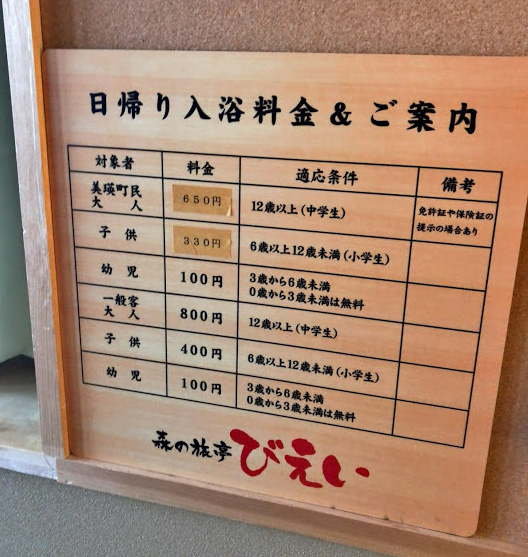 日帰り入浴料金&ご案内
対象者 料金 適応条件 備考
美瑛町民
大人 650円 12歳以上(中学生) 免許証や保険証の
提示の場合あり
子供 330円 6歳以上12歳未満(小学生)
幼児 100円 3歳から6歳未満
0歳から3歳未満は無料
一般客
大人 800円 12歳以上(中学生)
子供 400円 6歳以上12歳未満(小学生)
幼児 100円 3歳から6歳未満
0歳から3歳未満は無料
森の旅亭 びえい